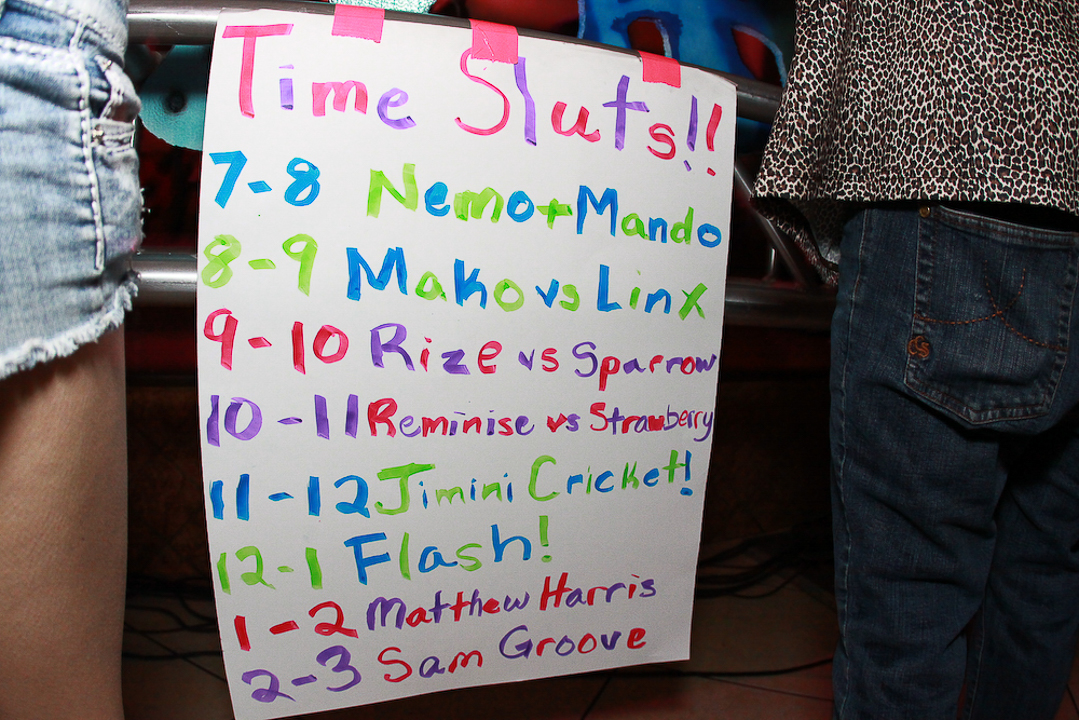 Time Sluts!!
7-8 Nemo+Mando
8-9 Mako vs Linx
9-10 Rize vs Sparrow
10-11 Reminise vs Strawberry
11-12 Jimini Cricket!
12-1 Flash!
1-2 Matthew Harris
2-3 Sam Groove